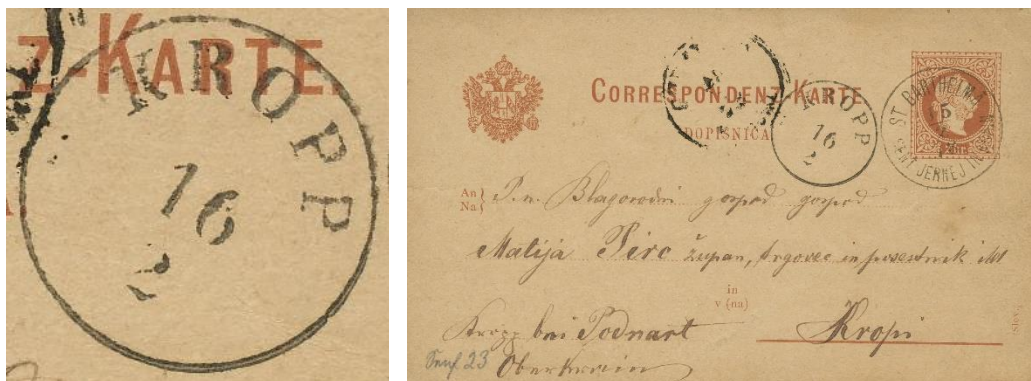 Z-KARTE.
KROPP
16
2
CORRESPONDENZ-KARTE
DOPISNICA
KROPP
16
2
ST. BARTHELMÄ
15
ŠENT JERNEJ
An
Na
P. n. Blagorodni gospod gospod
Matija Pirc župan, trgovec in posestnik itd
in
v (na)
Kropp bei Podnart
Kropi
Oberkrain
Senf 23
(Slov.)